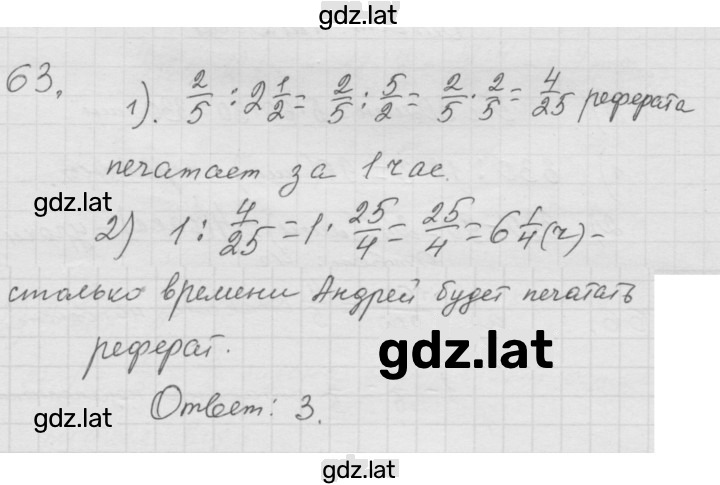 gdz.lat
63.
1). 2/5 : 2 1/2 = 2/5 : 5/2 = 2/5 · 2/5 = 4/25 реферата
печатает за 1 час.
gdz.lat
2) 1 : 4/25 = 1 · 25/4 = 25/4 = 6 1/4 (ч) –
столько времени Андрей будет печатать
реферат.
gdz.lat
Ответ: 3.
gdz.lat
gdz.lat